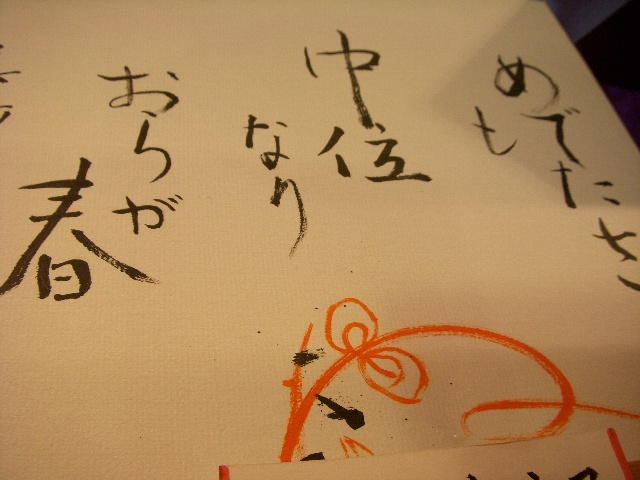 めでたさ
も
中位
なり
おらが
春